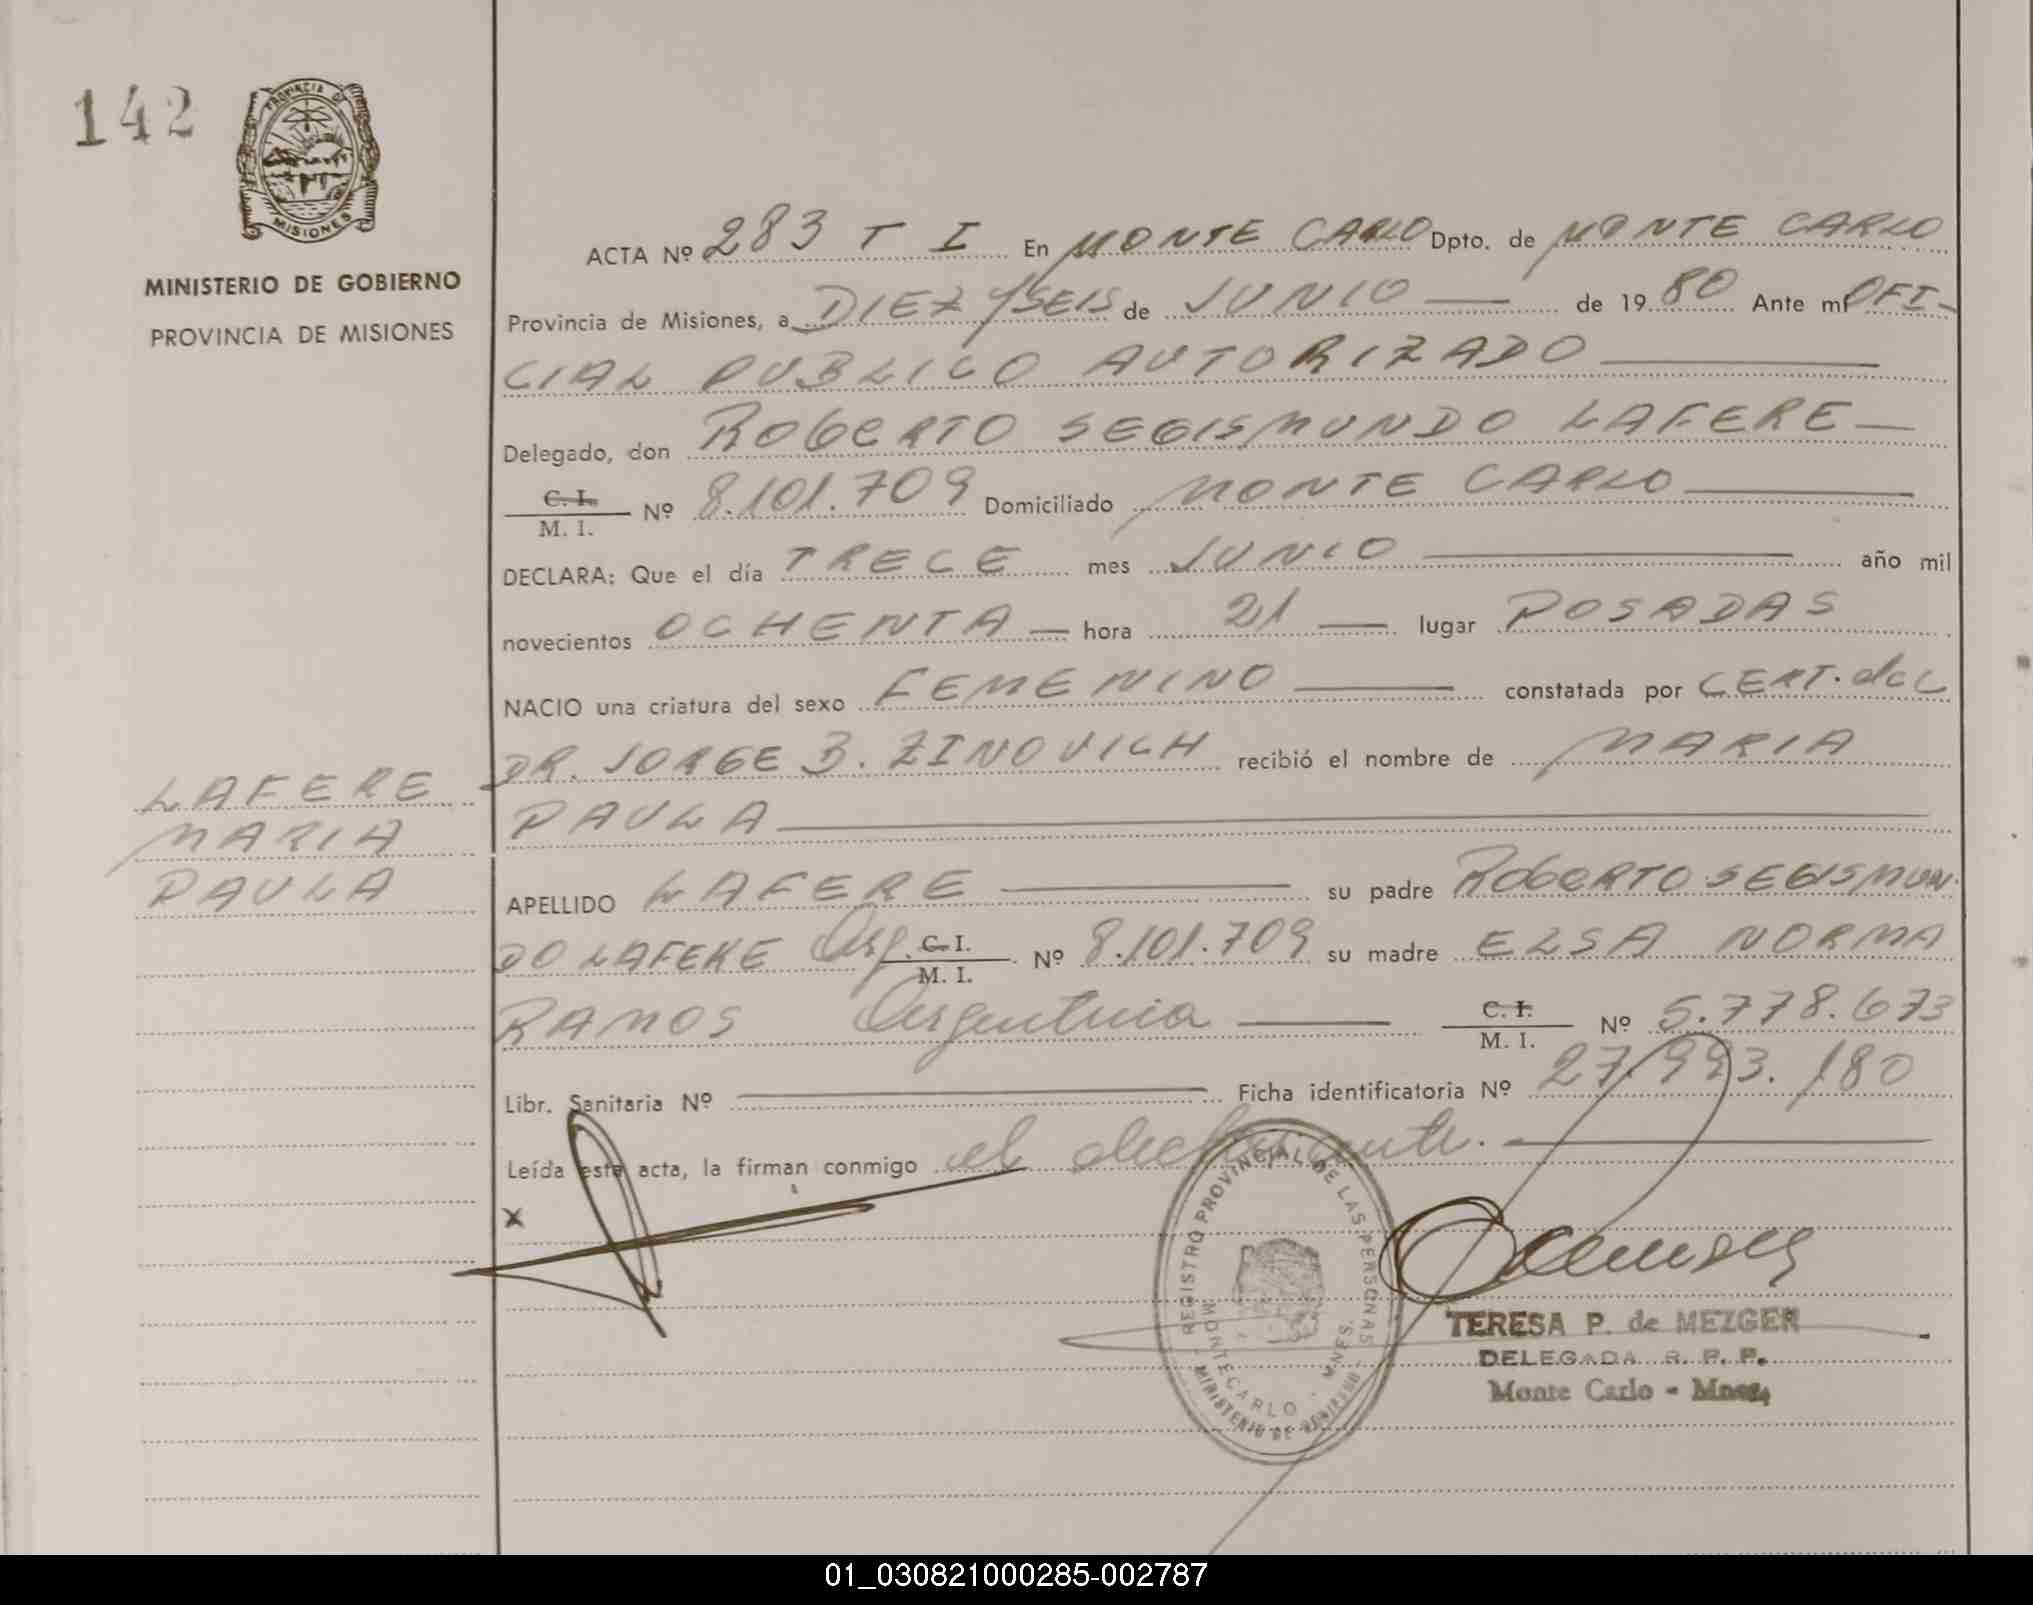 142
PROVINCIA DE
MISIONES
MINISTERIO DE GOBIERNO
PROVINCIA DE MISIONES
LAFERE
MARIA
PAULA
ACTA Nº 283 T I En MONTE CARLO Dpto. de MONTE CARLO
Provincia de Misiones, a DIEZ y SEIS de JUNIO de 19 80 Ante mí OFI-
CIAL PUBLICO AUTORIZADO
Delegado, don ROBERTO SEGISMUNDO LAFERE
C. I.
M. I. Nº 8.101.709 Domiciliado MONTE CARLO
DECLARA: Que el día TRECE mes JUNIO año mil
novecientos OCHENTA hora 21 lugar POSADAS
NACIO una criatura del sexo FEMENINO constatada por CERT. del
DR. JORGE B. ZINOVICH recibió el nombre de MARIA
PAULA
APELLIDO LAFERE su padre ROBERTO SEGISMUN-
DO LAFERE Arg. C. I. M. I. Nº 8.101.709 su madre ELSA NORMA
RAMOS Argentina C. I. M. I. Nº 5.778.673
Libr. Sanitaria Nº Ficha identificatoria Nº 27.993.180
Leída esta acta, la firman conmigo el declarante.
x
REGISTRO PROVINCIAL DE LAS PERSONAS
MONTECARLO - MNES.
MINISTERIO DE GOBIERNO
TERESA P. de MEZGER
DELEGADA R. P. P.
Monte Carlo - Mnes,
01_030821000285-002787